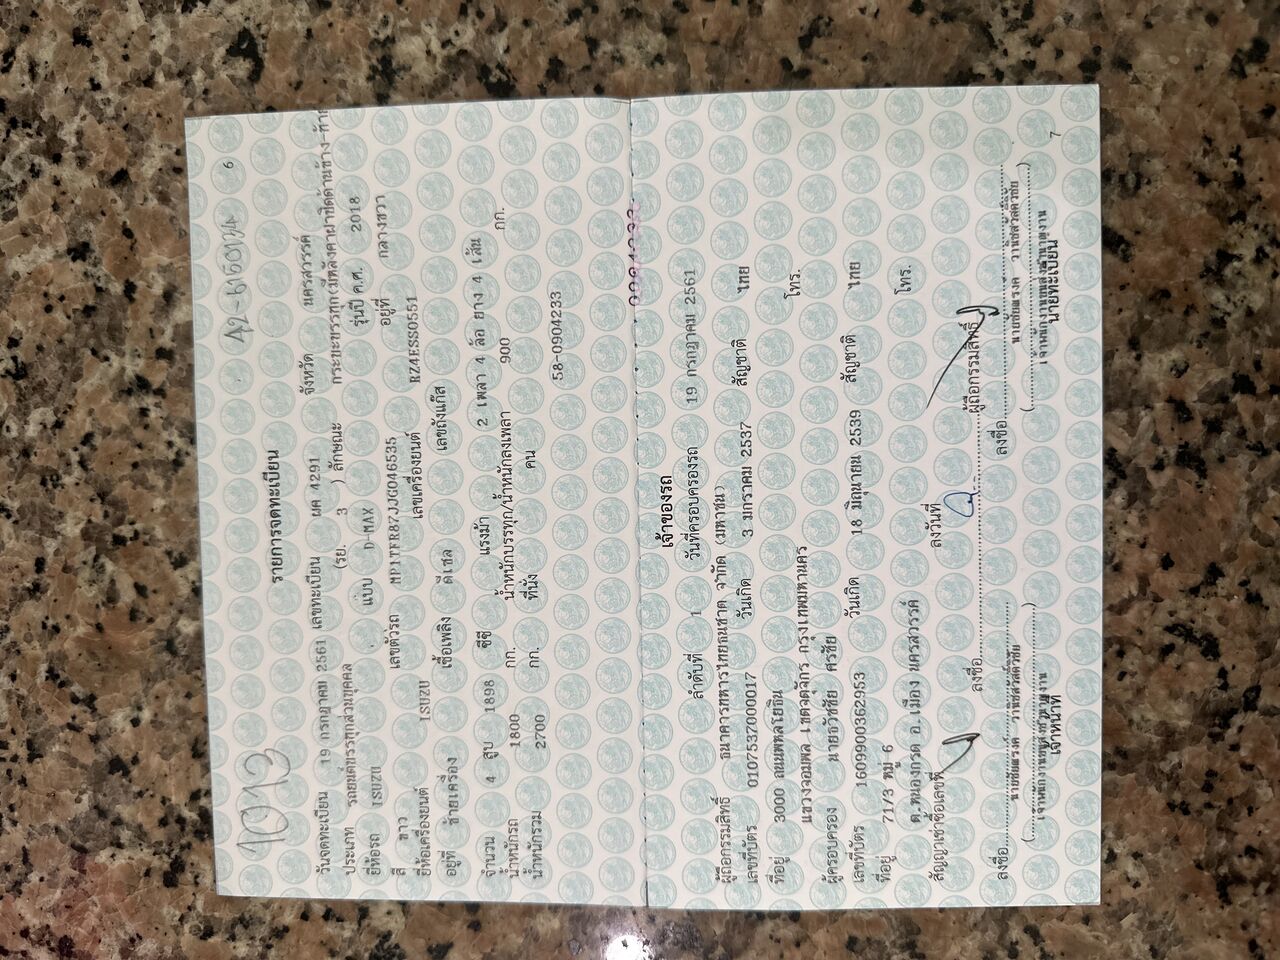 10913
A2-6150134
6
รายการจดทะเบียน
วันจดทะเบียน 19 กรกฎาคม 2561 เลขทะเบียน ผค 4291 จังหวัด นครสวรรค์
ประเภท รถยนต์บรรทุกส่วนบุคคล (รย. 3 ) ลักษณะ กระบะบรรทุก(มีหลังคาฝาปิดด้านข้าง-ท้าย
ยี่ห้อรถ ISUZU แบบ D-MAX รุ่นปี ค.ศ. 2018
สี ขาว เลขตัวรถ MP1TFR87JJG046535 อยู่ที่ กลางขวา
ยี่ห้อเครื่องยนต์ ISUZU เลขเครื่องยนต์ RZ4ESS0551
อยู่ที่ ซ้ายเครื่อง เชื้อเพลิง ดีเซล เลขถังแก๊ส
จำนวน 4 สูบ 1898 ซีซี แรงม้า 2 เพลา 4 ล้อ ยาง 4 เส้น
น้ำหนักรถ 1800 กก. น้ำหนักบรรทุก/น้ำหนักลงเพลา 900 กก.
น้ำหนักรวม 2700 กก. ที่นั่ง คน
58-0904233
เจ้าของรถ
ลำดับที่ 1 วันที่ครอบครองรถ 19 กรกฎาคม 2561
ผู้ถือกรรมสิทธิ์ ธนาคารทหารไทยธนชาต จำกัด (มหาชน)
เลขที่บัตร 0107537000017 วันเกิด 3 มกราคม 2537 สัญชาติ ไทย
ที่อยู่ 3000 ถนนพหลโยธิน
แขวงจอมพล เขตจตุจักร กรุงเทพมหานคร โทร.
ผู้ครอบครอง นายธวัชชัย ศรชัย
เลขที่บัตร 1609900362953 วันเกิด 18 มิถุนายน 2539 สัญชาติ ไทย
ที่อยู่ 71/3 หมู่ 6
ต.หนองกรด อ.เมือง นครสวรรค์ โทร.
สัญญาเช่าซื้อเลขที่ ลงวันที่
ลงชื่อ ผู้ถือกรรมสิทธิ์
ลงชื่อ ลงชื่อ
เจ้าพนักงานขนส่งชำนาญงาน เจ้าพนักงานขนส่งชำนาญงาน
เจ้าหน้าที่ นายทะเบียน
7